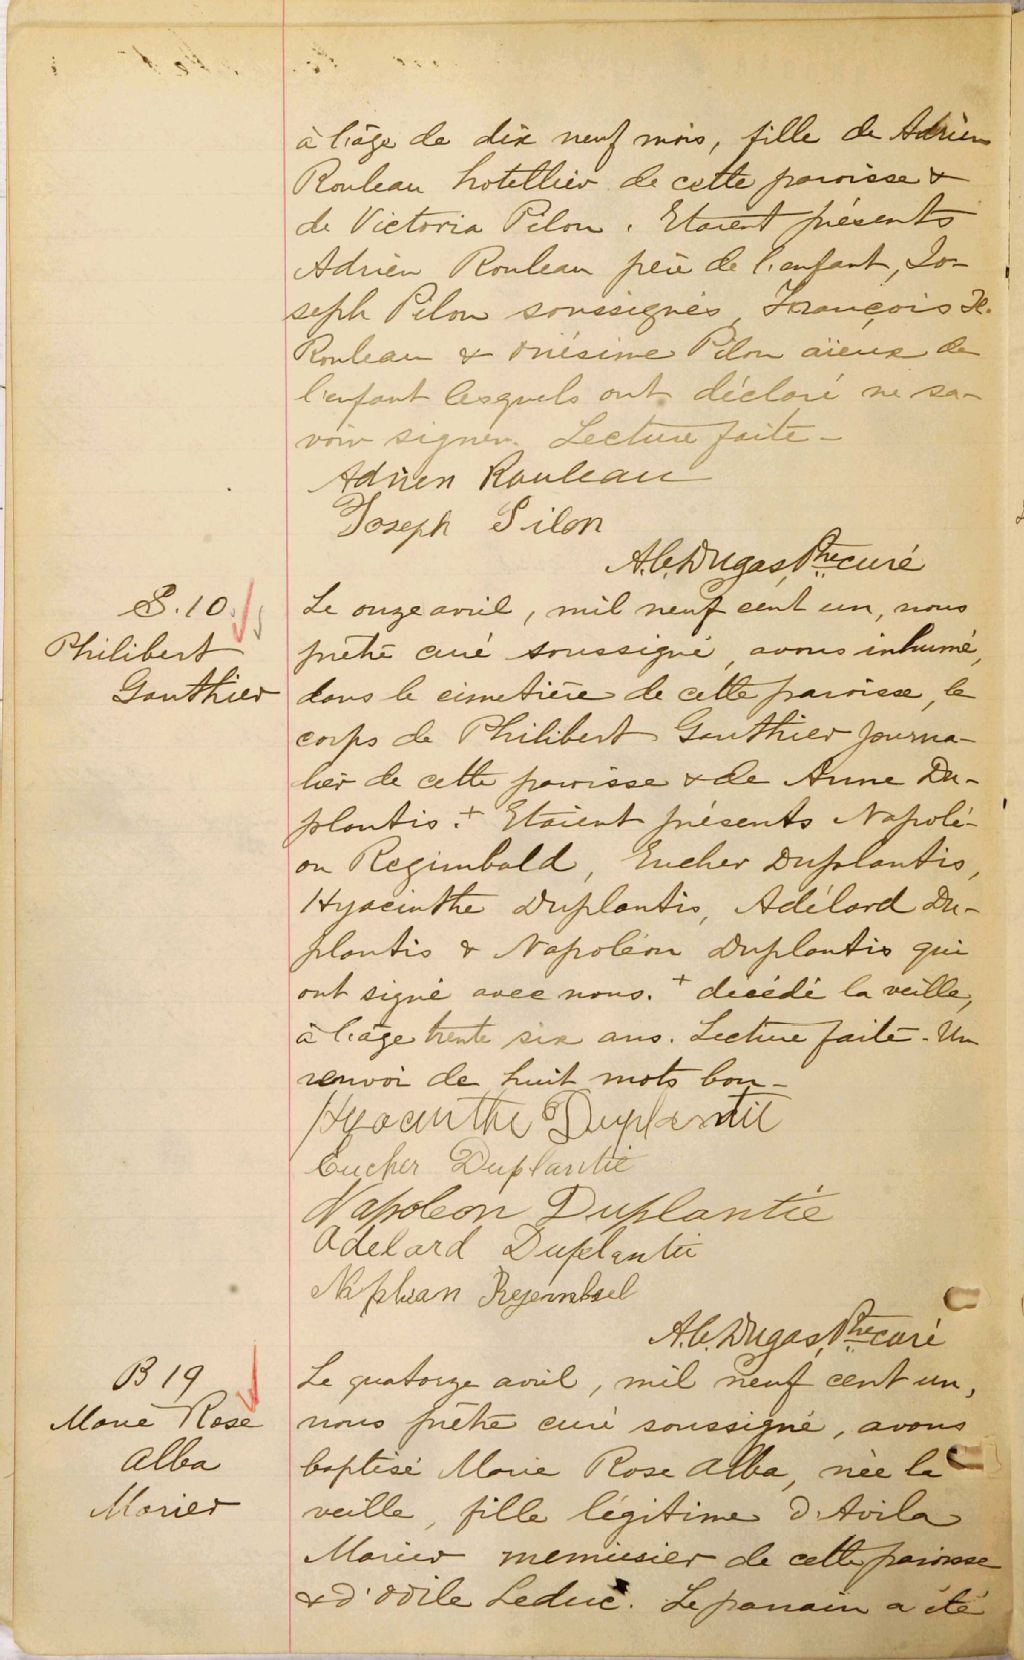 à l'âge de dix neuf mois, fille de Adrien
Rouleau hotellier de cette paroisse &
de Victoria Pilon. Etaient présents
Adrien Rouleau père de l'enfant, Jo-
seph Pilon soussignés, François X.
Rouleau & Onésime Pilon aïeux de
l'enfant lesquels ont déclaré ne sa-
voir signer. Lecture faite -
Adrien Rouleau
Joseph Pilon
A.C. Dugas, Ptre curé
S. 10.
Philibert
Gauthier
Le onze avril, mil neuf cent un, nous
prêtre curé soussigné, avons inhumé,
dans le cimetière de cette paroisse, le
corps de Philibert Gauthier journa-
lier de cette paroisse & de Anne Du-
plantis.+ Etaient présents Napolé-
on Regimbald, Eucher Duplantis,
Hyacinthe Duplantis, Adélard Du-
plantis & Napoléon Duplantis qui
ont signé avec nous. + décédé la veille,
à l'âge trente six ans. Lecture faite - Un
renvoi de huit mots bon -
Hyacinthe Duplantie
Eucher Duplantie
Napoleon Duplantie
Adelard Duplantie
A.C. Dugas, Ptre curé
B 19
Marie Rose
Alba
Marier
Le quatorze avril, mil neuf cent un,
nous prêtre curé soussigné, avons
baptisé Marie Rose Alba, née la
veille, fille légitime d'Avila
Marier menuisier de cette paroisse
& d'Odile Leduc. Le parrain a été